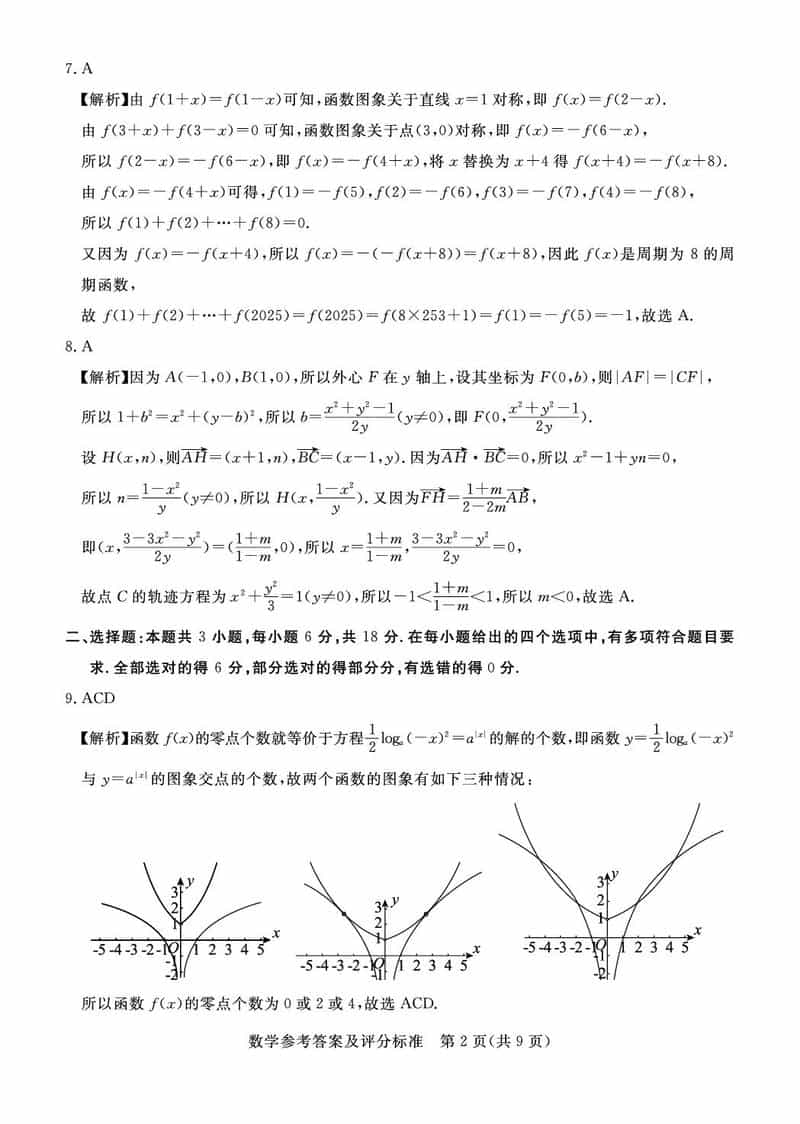 7. A
【解析】由 f(1+x)=f(1-x)可知,函数图象关于直线 x=1 对称,即 f(x)=f(2-x).
由 f(3+x)+f(3-x)=0 可知,函数图象关于点(3,0)对称,即 f(x)=-f(6-x),
所以 f(2-x)=-f(6-x),即 f(x)=-f(4+x),将 x 替换为 x+4 得 f(x+4)=-f(x+8).
由 f(x)=-f(4+x)可得,f(1)=-f(5),f(2)=-f(6),f(3)=-f(7),f(4)=-f(8),
所以 f(1)+f(2)+⋯+f(8)=0.
又因为 f(x)=-f(x+4),所以 f(x)=-(-f(x+8))=f(x+8),因此 f(x)是周期为 8 的周
期函数,
故 f(1)+f(2)+⋯+f(2025)=f(2025)=f(8×253+1)=f(1)=-f(5)=-1,故选 A.
8. A
【解析】因为 A(-1,0),B(1,0),所以外心 F 在 y 轴上,设其坐标为 F(0,b),则|AF|=|CF|,
所以 1+b²=x²+(y-b)²,所以 b=\frac{x²+y²-1}{2y}(y≠0),即 F(0,\frac{x²+y²-1}{2y}).
设 H(x,n),则\overrightarrow{AH}=(x+1,n),\overrightarrow{BC}=(x-1,y).因为\overrightarrow{AH}·\overrightarrow{BC}=0,所以 x²-1+yn=0,
所以 n=\frac{1-x²}{y}(y≠0),所以 H(x,\frac{1-x²}{y}).又因为\overrightarrow{FH}=\frac{1+m}{2-2m}\overrightarrow{AB},
即(x,\frac{3-3x²-y²}{2y})=(\frac{1+m}{1-m},0),所以 x=\frac{1+m}{1-m},\frac{3-3x²-y²}{2y}=0,
故点 C 的轨迹方程为 x²+\frac{y²}{3}=1(y≠0),所以-1<\frac{1+m}{1-m}<1,所以 m<0,故选 A.
二、选择题:本题共 3 小题,每小题 6 分,共 18 分.在每小题给出的四个选项中,有多项符合题目要
求.全部选对的得 6 分,部分选对的得部分分,有选错的得 0 分.
9. ACD
【解析】函数 f(x)的零点个数就等价于方程\frac{1}{2}logₐ(-x)²=a^{|x|}的解的个数,即函数 y=\frac{1}{2}logₐ(-x)²
与 y=a^{|x|}的图象交点的个数,故两个函数的图象有如下三种情况:
y
3
2
1
x
-5 -4 -3 -2 -1 O 1 2 3 4 5
-1
-2
y
3
2
1
x
-5 -4 -3 -2 -1 O 1 2 3 4 5
-1
y
3
2
1
x
-5 -4 -3 -2 -1 O 1 2 3 4 5
-1
-2
所以函数 f(x)的零点个数为 0 或 2 或 4,故选 ACD.
数学参考答案及评分标准 第 2 页(共 9 页)